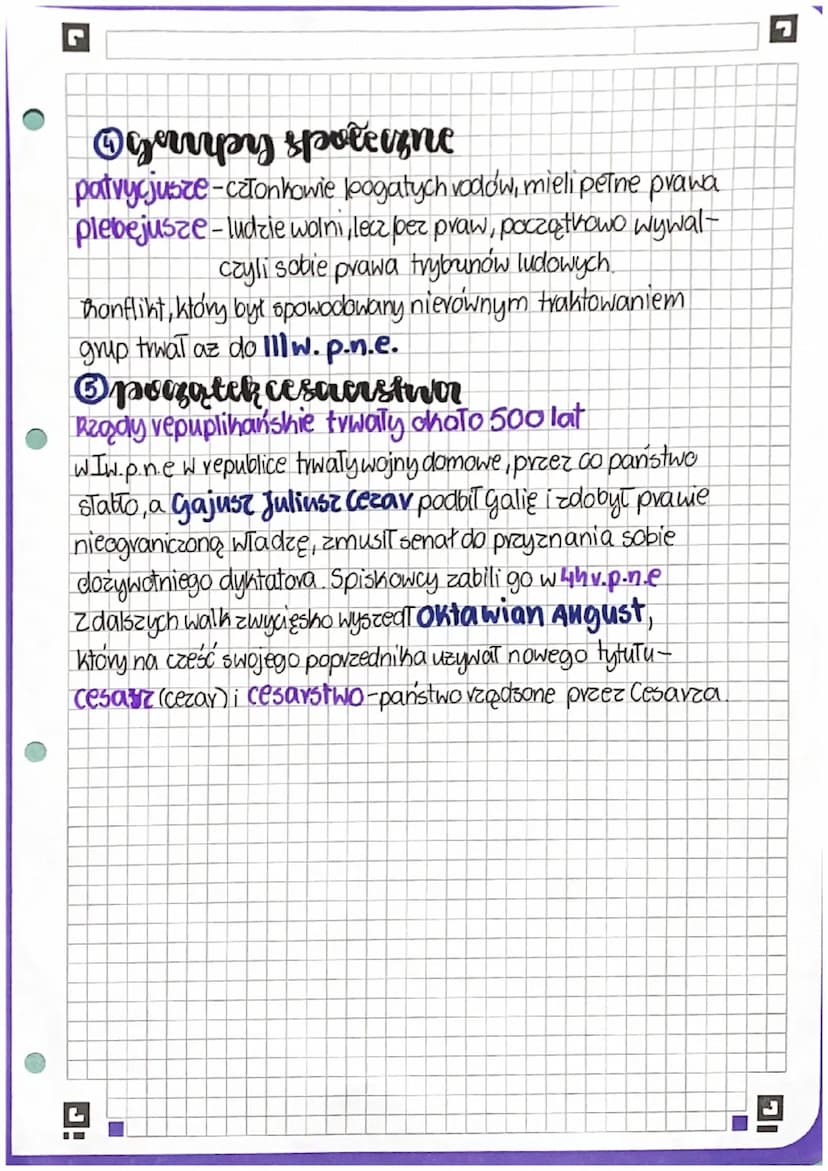 ④ Grupy społeczne
patrycjusze - członkowie bogatych rodów, mieli pełne prawa
plebejusze - ludzie wolni, lecz bez praw, początkowo wywal-
czyli sobie prawa trybunów ludowych.
Konflikt, który był spowodowany nierównym traktowaniem
grup trwał aż do III w. p.n.e.
⑤ początek cesarstwa
Rządy republikańskie trwały około 500 lat
w I w. p.n.e w republice trwały wojny domowe, przez co państwo
słabło, a Gajusz Juliusz Cezar podbił Galię i zdobył prawie
nieograniczoną władzę, zmusił senat do przyznania sobie
dożywotniego dyktatora. Spiskowcy zabili go w 44r. p.n.e
Z dalszych walk zwycięsko wyszedł Oktawian August,
który na cześć swojego poprzednika używał nowego tytułu -
cesarz (cezar) i cesarstwo - państwo rządzone przez Cesarza.